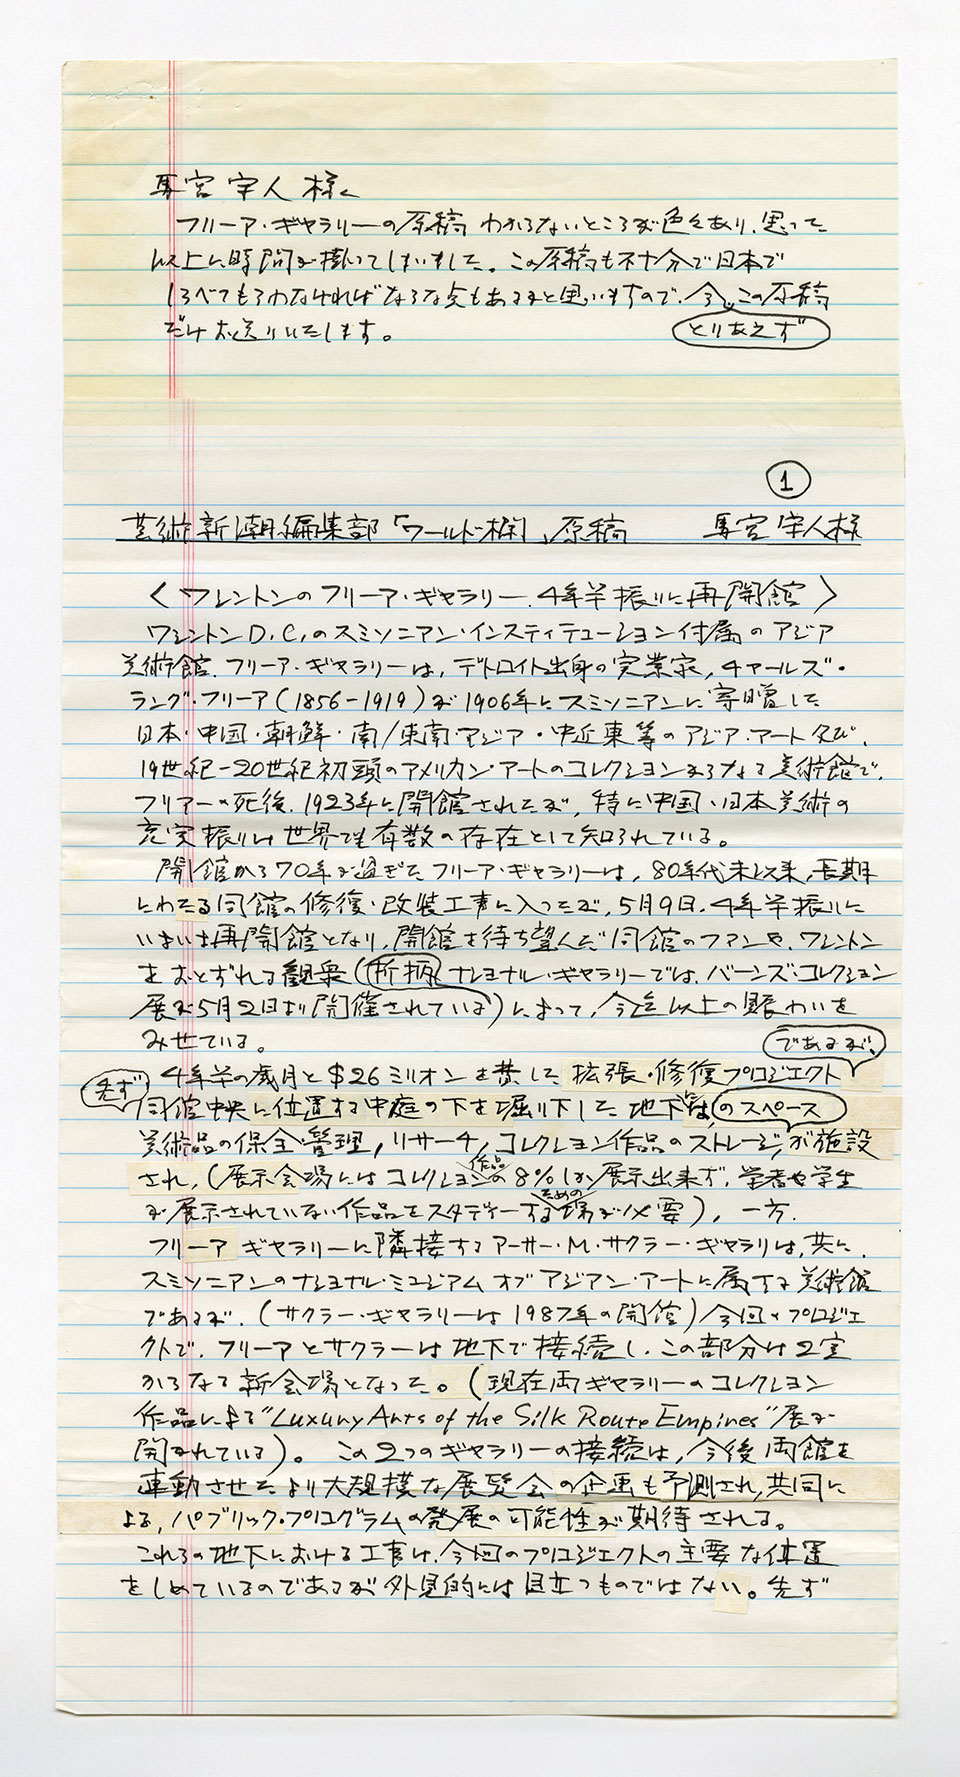 馬宮守人様
フリーア・ギャラリーの原稿 わからないところが色々あり、思って
以上に時間が掛ってしまいました。この原稿も不十分で日本で
しらべてもらわなければならな点もあるかと思いますので、今、この原稿
とりあえず
だけお送りいたします。
1
芸術新潮編集部「ワールド欄」原稿 馬宮守人様
〈ワシントンのフリーア・ギャラリー、4年半振りに再開館〉
ワシントンD.C.のスミソニアン・インスティテューション付属のアジア
美術館、フリーア・ギャラリーは、デトロイト出身の実業家、チャールズ・
ラング・フリーア(1856-1919)が1906年にスミソニアンに寄贈した
日本・中国・朝鮮・南/東南アジア・中近東等のアジア・アート及び、
19世紀-20世紀初頭のアメリカン・アートのコレクションからなる美術館で、
フリアーの死後、1923年に開館されたが、特に中国・日本美術の
充実振りは世界でも有数の存在として知られている。
開館から70年が過ぎたフリーア・ギャラリーは、80年代末以来、長期
にわたる同館の修復・改装工事に入ったが、5月9日、4年半振りに
いよいよ再開館となり、開館を待ち望んだ同館のファンや、ワシントン
をおとずれる観衆(折柄ナショナル・ギャラリーでは、バーンズ・コレクション
展が5月2日より開催されている)によって、今迄以上の賑わいを
みせている。
であるが、
4年半の歳月と$26ミリオンを費した拡張・修復プロジェクト
先ず
同館中央に位置する中庭の下を堀り下した地下には、のスペース
美術品の保全・管理、リサーチ、コレクション作品のストレージが施設
され、(展示会場にはコレクション作品の8%しか展示出来ず、学者や学生
が展示されていない作品をスタディーするための場が必要)、一方、
フリーア ギャラリーに隣接するアーサー・M・サクラー・ギャラリは、共に、
スミソニアンのナショナル・ミュジアム オブ アジアン・アートに属する美術館
であるが、(サクラー・ギャラリーは1987年の開館)今回のプロジェ
クトで、フリーアとサクラーは地下で接続し、この部分は2室
からなる新会場となった。(現在両ギャラリーのコレクション
作品による"Luxuny Arts of the Silk Route Empines"展が
開かれている)。この2つのギャラリーの接続は、今後両館を
連動させたより大規模な展覧会の企画も予測され、共同に
よる、パブリック・プログラムの発展の可能性が期待される。
これらの地下における工事は、今回のプロジェクトの主要な位置
をしめているのであるが外見的には目立つものではない。先ず